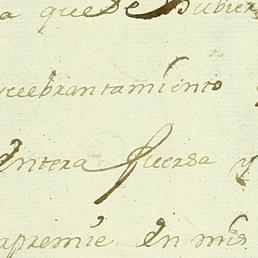 a que se hubier
ucebrantamiento
entera fuersa y
apremie en mis